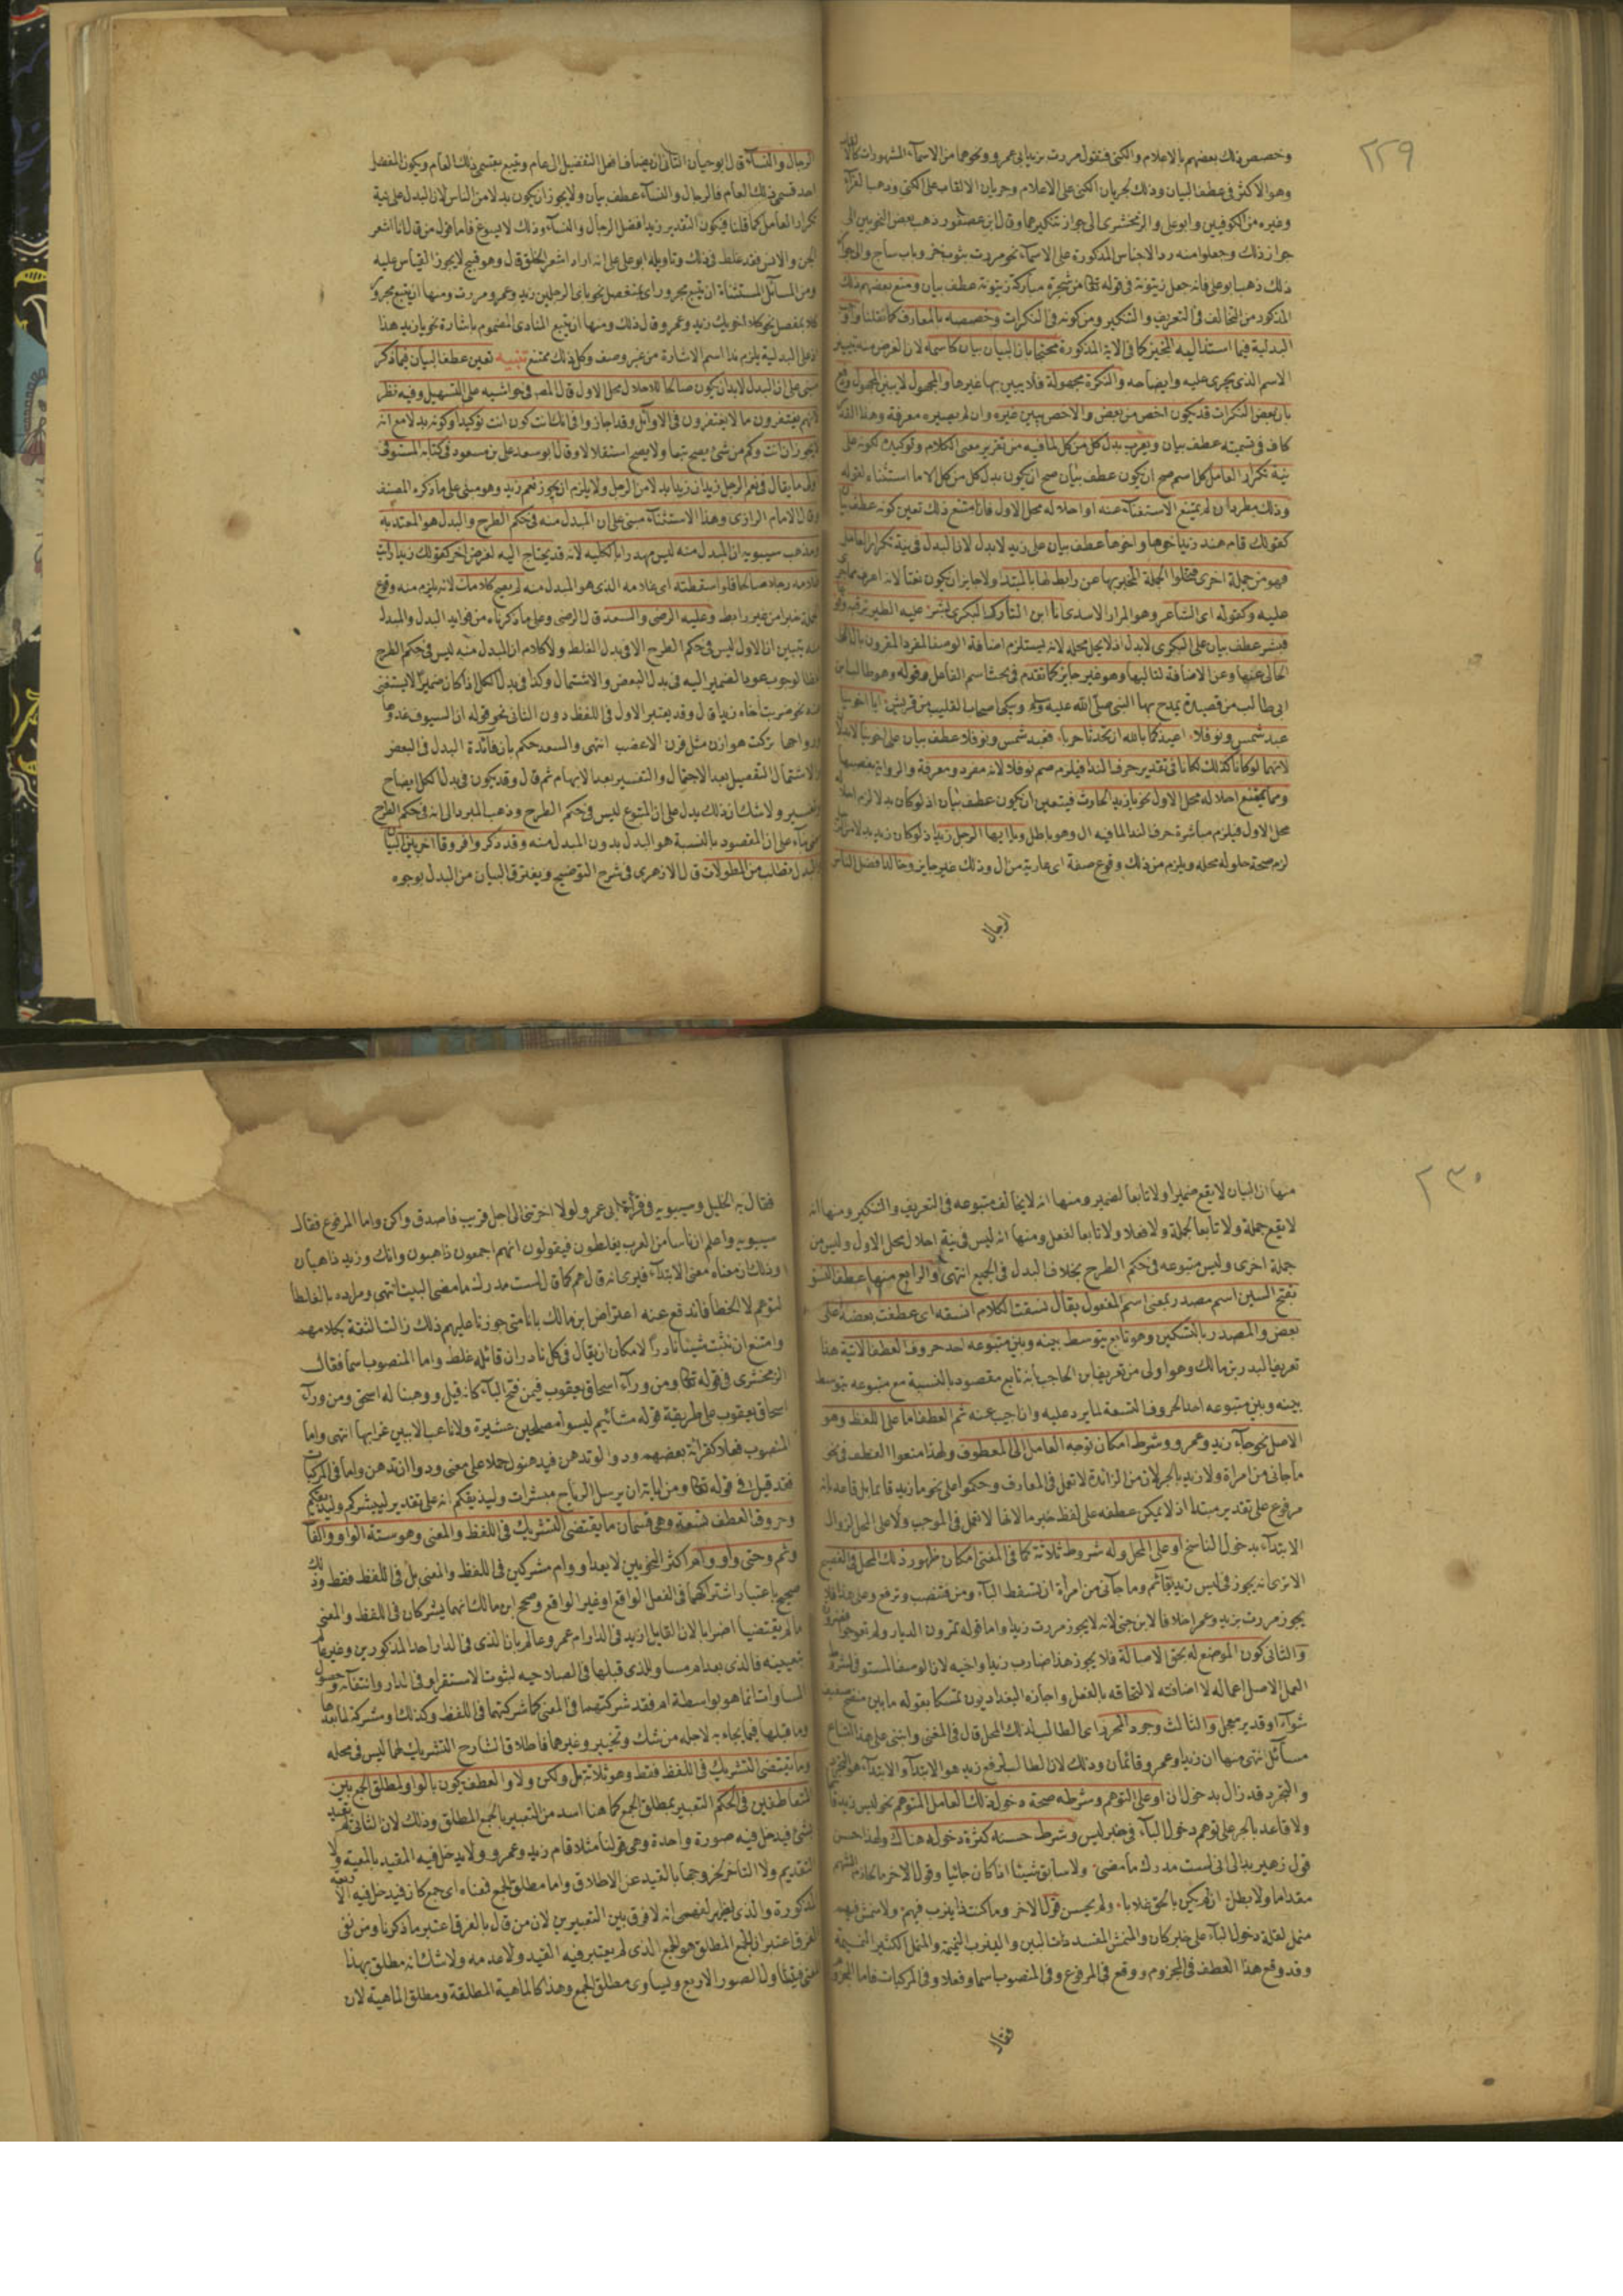 ٢٢٩
وخصص ذلك بعضهم بالاعلام والكنى فتقول مررت بزيد ابي عمرو ونحوهما من الاسماء المشهورات
وهو الاكثر في عطف البيان وذلك لجريان الكنى على الاعلام وجريان الالقاب على الكنى وذهب الفراء
وغيره من الكوفيين وابو علي والزمخشري الى جواز تنكيرهما وقال ابن عصفور ذهب بعض النحويين الى
جواز ذلك وجعلوا منه رد الاجناس المذكورة على الاسماء نحو مررت بثوب خز وباب ساج
ذلك ذهب ابو علي فانه جعل زيتونة في قوله تعا من شجرة مباركة زيتونة عطف بيان ومنع بعضهم ذلك
المذكور من التخالف في التعريف والتنكير ومن كونه في النكرات وخصصه بالمعارف كما نقلناه
البدلية فيما استند اليه المجيز كما في الاية المذكورة محتجا بان البيان بيان كاسمه لان الغرض منه تبيين
الاسم الذي يجري عليه وايضاحه والنكرة مجهولة فلا يبين بها غيرها والمجهول لا يبين المجهول
بان بعض النكرات قد يكون اخص من بعض والاخص يبين غيره وان لم يصيره معرفة وهذا القدر
كاف في تسميته عطف بيان ويعرب بدل كل من كل لما فيه من تقرير معنى الكلام وتوكيده لكونه على
نية تكرار العامل كل اسم صح ان يكون عطف بيان صح ان يكون بدل كل من كل الا ما استثناه بقوله
وذلك مطرد ان لم يمتنع الاستغناء عنه او احلاله محل الاول فان امتنع ذلك تعين كونه عطف بيان
كقولك قام هند زيد اخوها واخوها عطف بيان على زيد لا بدل لان البدل في نية تكرار العامل
فهو من جملة اخرى فتخلوا الجملة المخبر بها عن رابط لها بالمبتدا ولا جايز ان يكون نعتا لانه اعرف مما جرى
عليه وكقوله اى الشاعر وهو المرار الاسدى انا ابن التارك البكرى بشر عليه الطير ترقبه وقوعا
فبشر عطف بيان على البكرى لا بدل اذ لا يحل محله لانه يستلزم اضافة الوصف المفرد المقرون بال الى
الخالى عنها وعن الاضافة لتاليها وهو غير جايز كما تقدم في بحث اسم الفاعل وقوله وهو طالب ابن
ابى طالب من قصيدة يمدح بها النبى صلى الله عليه وسلم ويبكى اصحاب القليب من قريش ايا اخوينا
عبد شمس ونوفلا اعيذكما بالله ان تحدثا حربا فعبد شمس ونوفلا عطف بيان على اخوينا لا بدل
لانهما لو كانا كذلك لكانا في تقدير حرف الندا فيلزم ضم نوفلا لانه مفرد ومعرفة والرواية بنصبهما
ومما يمتنع احلاله محل الاول نحو يا زيد الحارث فيتعين ان يكون عطف بيان اذ لو كان بدلا لزم احلاله
محل الاول فيلزم مباشرة حرف الندا لما فيه ال وهو باطل ويا ايها الرجل زيد اذ لو كان زيد بدلا من الرجل
لزم صحة حلوله محله ويلزم من ذلك وقوع صفة اى عارية من ال وذلك غير جايز وخالد افضل الناس
الرجال
الرجال والنساء قال ابو حيان الثاني ان يضاف افعل التفضيل الى عام ويتبع بقسمي ذلك العام ويكون المفضل
احد قسمي ذلك العام فالرجال والنساء عطف بيان ولا يجوز ان يكون بدلا من الناس لان البدل على نية
تكرار العامل كما قلنا فيكون التقدير زيد افضل الرجال والنساء وذلك لا يسوغ فاما قول من قال انا اشعر
الجن والانس فقد غلط في ذلك وتاويله ابو علي على انه اراد اشعر الخلق قال وهو قبيح لا يجوز القياس عليه
ومن المسائل المستثناة ان يتبع مجرور اى بمفصل نحو باى الرجلين زيد وعمرو مررت ومنها ان يتبع مجرور
كلا بمفصل نحو كلا اخويك زيد وعمرو قال ذلك ومنها ان يتبع المنادى المضموم باشارة نحو يا زيد هذا
اذ على البدلية يلزم ندا اسم الاشارة من غير وصف وكل ذلك ممتنع تنبيه تعين عطف البيان فيما ذكر
مبني على ان البدل لا بد ان يكون صالحا للاحلال محل الاول قال المص في حواشيه على التسهيل وفيه نظر
لانهم يغتفرون ما لا يغتفرون في الاوائل وقد اجازوا في انك انت كون انت توكيدا وكونه بدلا مع انه
لا يجوز ان انت وكم من شئ يصح تبعا ولا يصح استقلالا وقال ابو سعد علي بن مسعود في كتابه المستوفى
واولى ما يقال في نعم الرجل زيد ان زيد بدلا من الرجل ولا يلزم ان يجوز نعم زيد وهو مبني على ما ذكره المصنف
وقال الامام الرازى وهذا الاستثناء مبني على ان المبدل منه في حكم الطرح والبدل هو المعتد به
ومذهب سيبويه ان المبدل منه ليس مهدرا بالكلية لانه قد يحتاج اليه لغرض اخر كقولك زيد رايت
غلامه رجلا صالحا فلو اسقطته اى غلامه الذى هو المبدل منه لم يصح كلامك لانه يلزم منه وقوع
الجملة خبرا من غير رابط وعليه الرضى والسعد قال الرضى وعلى ما ذكرناه من فوايد البدل والمبدل
منه يتبين ان الاول ليس في حكم الطرح الا في بدل الغلط ولا كلام ان المبدل منه ليس في حكم الطرح
لفظا لوجوب عود الضمير اليه في بدل البعض والاشتمال وكذا في بدل الكل اذا كان ضميرا لا يستغنى
عنه نحو ضربت اخاه زيدا قال وقد يعتبر الاول في اللفظ دون الثاني نحو قوله ان السيوف غدوها
ورواحها تركت هوازن مثل قرن الاعضب انتهى والسعد حكم بان فائدة البدل في البعض
والاشتمال التفصيل بعد الاجمال والتفسير بعد الابهام ثم قال وقد يكون في بدل الكل ايضاح
وتفسير ولا شك ان ذلك يدل على ان المتبوع ليس في حكم الطرح وذهب المبرد الى انه في حكم الطرح
بناء على ان المقصود بالنسبة هو البدل بدون المبدل منه وقد ذكروا فروقا اخر بين البيان
والبدل تطلب من المطولات قال الازهرى في شرح التوضيح ويفترق البيان من البدل بوجوه
٢٣٠
منها ان البيان لا يقع ضميرا ولا تابعا لضمير ومنها انه لا يخالف متبوعه في التعريف والتنكير ومنها انه
لا يقع جملة ولا تابعا لجملة ولا فعلا ولا تابعا لفعل ومنها انه ليس في نية احلاله محل الاول وليس من
جملة اخرى وليس متبوعه في حكم الطرح بخلاف البدل في الجميع انتهى والرابع منها عطف النسق
بفتح السين اسم مصدر بمعنى اسم المفعول يقال نسقت الكلام انسقه اى عطفت بعضه على
بعض والمصدر بالتسكين وهو تابع يتوسط بينه وبين متبوعه احد حروف العطف الاتية هنا
تعريف البدر بن مالك وهو اولى من تعريف ابن الحاجب بانه تابع مقصود بالنسبة مع متبوعه يتوسط
بينه وبين متبوعه احد الحروف التسعة لما يرد عليه وان اجيب عنه ثم العطف اما على اللفظ وهو
الاصل نحو جاء زيد وعمرو وشرطه امكان توجه العامل الى المعطوف ولهذا منعوا العطف في نحو
ما جانى من امراة ولا زيد بالجر لان من الزائدة لا تعمل في المعارف وحكموا على نحو ما زيد قائما بل قاعد بانه
مرفوع على تقدير مبتدا اذ لا يمكن عطفه على لفظ خبر ما لانها لا تعمل في الموجب ولا على المحل لزوال
الابتداء بدخول الناسخ او على المحل وله شروط ثلاثة كما في المغنى امكان ظهور ذلك المحل في الفصيح
الا ترى انه يجوز في ليس زيد بقائم وما جاءني من امراة ان تسقط الباء ومن فتنصب وترفع وعلى هذا فلا
يجوز مررت بزيد وعمرا خلافا لابن جني لانه لا يجوز مررت زيدا واما قوله تمرون الديار ولم تعوجوا
والثاني كون الموضع له بحق الاصالة فلا يجوز هذا ضارب زيدا واخيه لان الوصف المستوفى لشروط
العمل الاصل اعماله لا اضافته لالتحاقه بالفعل واجازه البغداديون تمسكا بقوله ما بين منضج صفيف
شواء او قدير معجل والثالث وجود المحرز اى الطالب لذلك المحل قال في المغنى وابتنى على هذا امتناع
مسائل انتهى منها ان زيدا وعمرو قائمان وذلك لان الطالب لرفع زيد هو الابتداء والابتداء هو التجرد
والتجرد قد زال بدخول ان او على التوهم وشرطه صحة دخول ذلك العامل المتوهم نحو ليس زيد قائما
ولا قاعد بالجر على توهم دخول الباء في خبر ليس وشرط حسنه كثرة دخوله هناك ولهذا حسن
قول زهير بدا لي اني لست مدرك ما مضى ولا سابق شيئا اذا كان جائيا وقول الاخر ما الحازم الشهم
مقداما ولا بطل ان لم يكن بالحق غلابا ولم يحسن قول الاخر وما كنت ذا نيرب فيهم ولا منمش فيهم
منمل لقلة دخول الباء على خبر كان والمنمش المفسد ذات البين والنيرب النميمة والمنمل الكثير النميمة
وقد وقع هذا العطف في المجزوم ووقع في المرفوع وفي المنصوب اسما وفعلا وفي المركبات فاما المجزوم
فقال
فقال به الخليل وسيبويه في قرأة ابى عمرو لولا اخرتني الى اجل قريب فاصدق واكن واما المرفوع فقال
سيبويه واعلم ان ناسا من العرب يغلطون فيقولون انهم اجمعون ذاهبون وانك وزيد ذاهبان
وذلك ان معناه معنى الابتداء فيرى انه قال هم كما قال لست مدرك ما مضى البيت انتهى ومراده بالغلط
التوهم لا الخطا فاندفع عنه اعتراض ابن مالك بانا متى جوزنا عليهم ذلك زالت الثقة بكلامهم
وامتنع ان نثبت شيئا نادرا لامكان ان يقال في كل نادر ان قائله غلط واما المنصوب اسما فقال
الزمخشرى في قوله تعا ومن وراء اسحاق يعقوب فيمن فتح الباء كانه قيل ووهبنا له اسحق ومن وراء
اسحاق يعقوب على طريقة قوله مشائيم ليسوا مصلحين عشيرة ولا ناعب الا ببين غرابها انتهى واما
المنصوب فعلا كقرأة بعضهم ودوا لو تدهن فيدهنوا حملا على معنى ودوا ان تدهن واما في المركبات
فقد قيل في قوله تعا ومن اياته ان يرسل الرياح مبشرات وليذيقكم انه على تقدير ليبشركم وليذيقكم
وحروف العطف تسعة وهي قسمان ما يقتضي التشريك في اللفظ والمعنى وهو ستة الواو والفاء
وثم وحتى واو وام اكثر النحويين لا يعد او وام مشركين في اللفظ والمعنى بل في اللفظ فقط وذلك
صحيح باعتبار اشتراكهما في الفعل الواقع او غير الواقع وصحح ابن مالك انهما يشركان في اللفظ والمعنى
ما لم يقتضيا اضرابا لان القايل ازيد في الدار ام عمرو عالم بان الذى في الدار احد المذكورين وغير عالم
بتعيينه فالذى بعد ام مساو للذى قبلها في الصلاحيه لثبوت الاستقرار في الدار وانتفائه وحصول
المساواة انما هو بواسطة ام فقد شركتهما في المعنى كما شركتهما في اللفظ وكذلك او مشركة لما بعدها
وما قبلها فيما يجاء به لاجله من شك وتخيير وغيرهما فاطلاق الشارح التشريك لهما ليس في محله
وما يقتضى التشريك في اللفظ فقط وهو ثلاثة بل ولكن ولا والعطف يكون بالواو لمطلق الجمع بين
المتعاطفين في الحكم التعبير بمطلق الجمع كما هنا اسد من التعبير بالجمع المطلق وذلك لان الثاني لم يقيد
بشئ فيدخل فيه صورة واحدة وهي قولنا مثلا قام زيد وعمرو ولا يدخل فيه المقيد بالمعية ولا
التقديم ولا التاخر لخروجها بالقيد عن الاطلاق واما مطلق الجمع فمعناه اى جمع كان فيدخل فيه الاربعة
المذكورة والذى يظهر لفهمى انه لا فرق بين التعبيرين لان من قال بالفرق اعتبر ما ذكرنا ومن نفى
الفرق اعتبر ان الجمع المطلق هو الجمع الذى لم يعتبر فيه القيد ولا عدمه ولا شك انه مطلق بهذا
المعنى فيتناول الصور الاربع ويساوى مطلق الجمع وهذا كالماهية المطلقة ومطلق الماهية لان